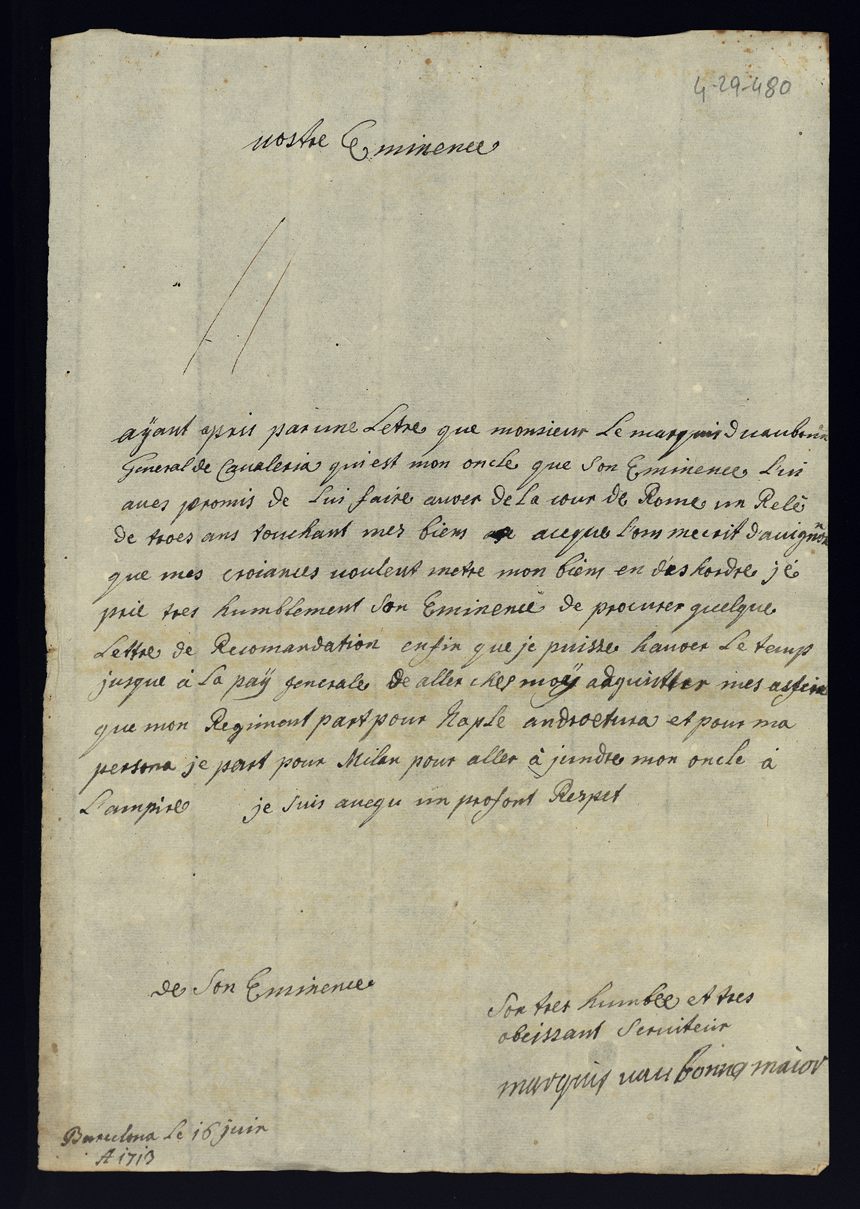 4-29-480
vostre Eminence
aÿant apris par une Letre que monsieur Le marquis d vaubonn
General de Cavaleria qui est mon oncle que Son Eminence Lui
aves promis de Lui faire auver de La cour de Rome un Relè
de troes ans touchant mes biens aceque L'om mecrit d'avignon
que mes croiances voulent metre mon biens en deshordre jé
prie tres humblement Son Eminence de procurer quelque
Lettre de Recomandation enfin que je puisse hauver Le temp
jusque à La paÿ generale de aller ches moÿ adquitter mes asfere
que mon Regiment part pour Naple androetura et pour ma
persona je part pour Milan pour aller à jundre mon oncle à
L'ampire je suis auequ un profont Respet
de Son Eminence
Son tres humble et tres
obeissant Serviteur
marquis vaubonne maior
Barcelona Le 16 juin
A 1713